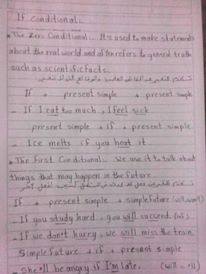 If conditional.
* The Zero Conditional.. It's used to make statements
about the real world and often refers to general truth
such as scientific facts.
If + present simple + present simple
- If I eat too much, I feel sick
present simple + if + present simple
- Ice melts if you heat it
* The First Conditional. We use it to talk about
things that may happen in the future
If + present simple + simple future
- If you study hard, you will succeed.
- If we don't hurry, we will miss the train.
Simple future + if + present simple
- She'll be angry if I'm late.